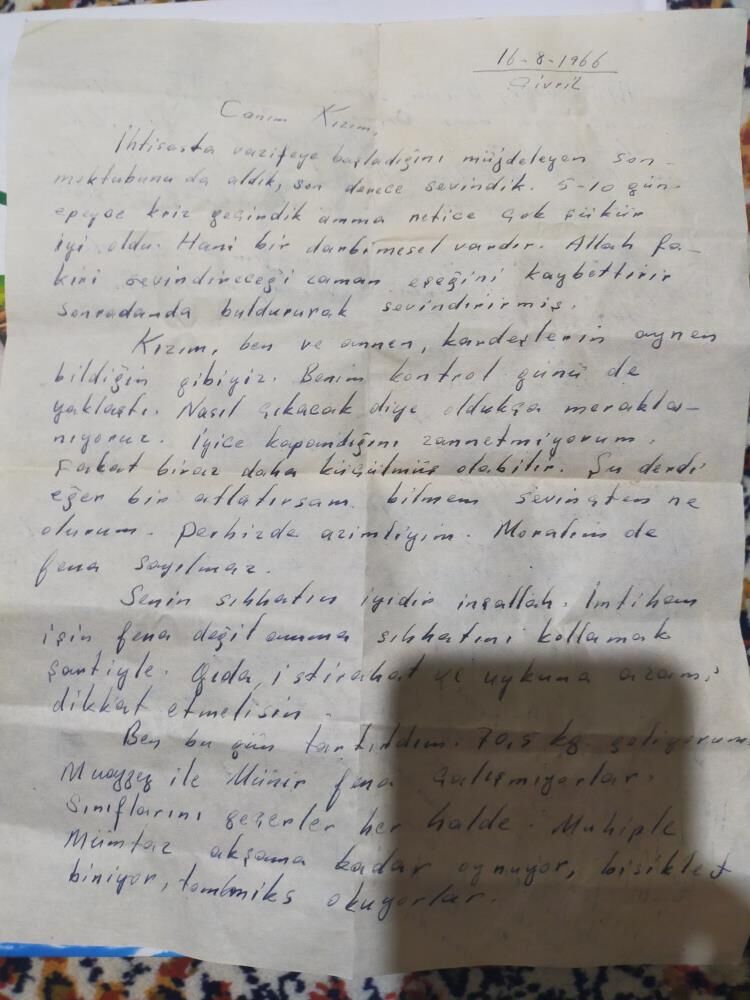 16-8-1966
Çivril
Canım Kızım,
İhtisasta vazifeye başladığını müjdeleyen son
mektubunu da aldık, son derece sevindik. 5-10 gün
epeyce kriz geçirdik amma netice çok şükür
iyi oldu. Hani bir darbimesel vardır. Allah fa-
kiri sevindireceği zaman eşeğini kaybettirir
sonradanda buldurarak sevindirirmiş.
Kızım, ben ve annen, kardeşlerin aynen
bildiğin gibiyiz. Benim kontrol günü de
yaklaştı. Nasıl çıkacak diye oldukça merakla-
nıyoruz. İyice kapandığını zannetmiyorum.
Fakat biraz daha küçülmüş olabilir. Şu derdi
eğer bir atlatırsam bilmem sevinçten ne
olurum. Perhizde azimliyim. Moralim de
fena sayılmaz.
Senin sıhhatın iyidir inşallah. İmtihan
için fena değil amma sıhhatini kollamak
şartiyle. Gıda, istirahat ve uykuna azami
dikkat etmelisin.
Ben bu gün tartıldım. 70,5 kg. geliyorum
Muazzez ile Münir fena çalışmıyorlar.
Sınıflarını geçerler her halde. Muhiple
Mümtaz akşama kadar oynuyor, bisiklet
biniyor, tommiks okuyorlar.